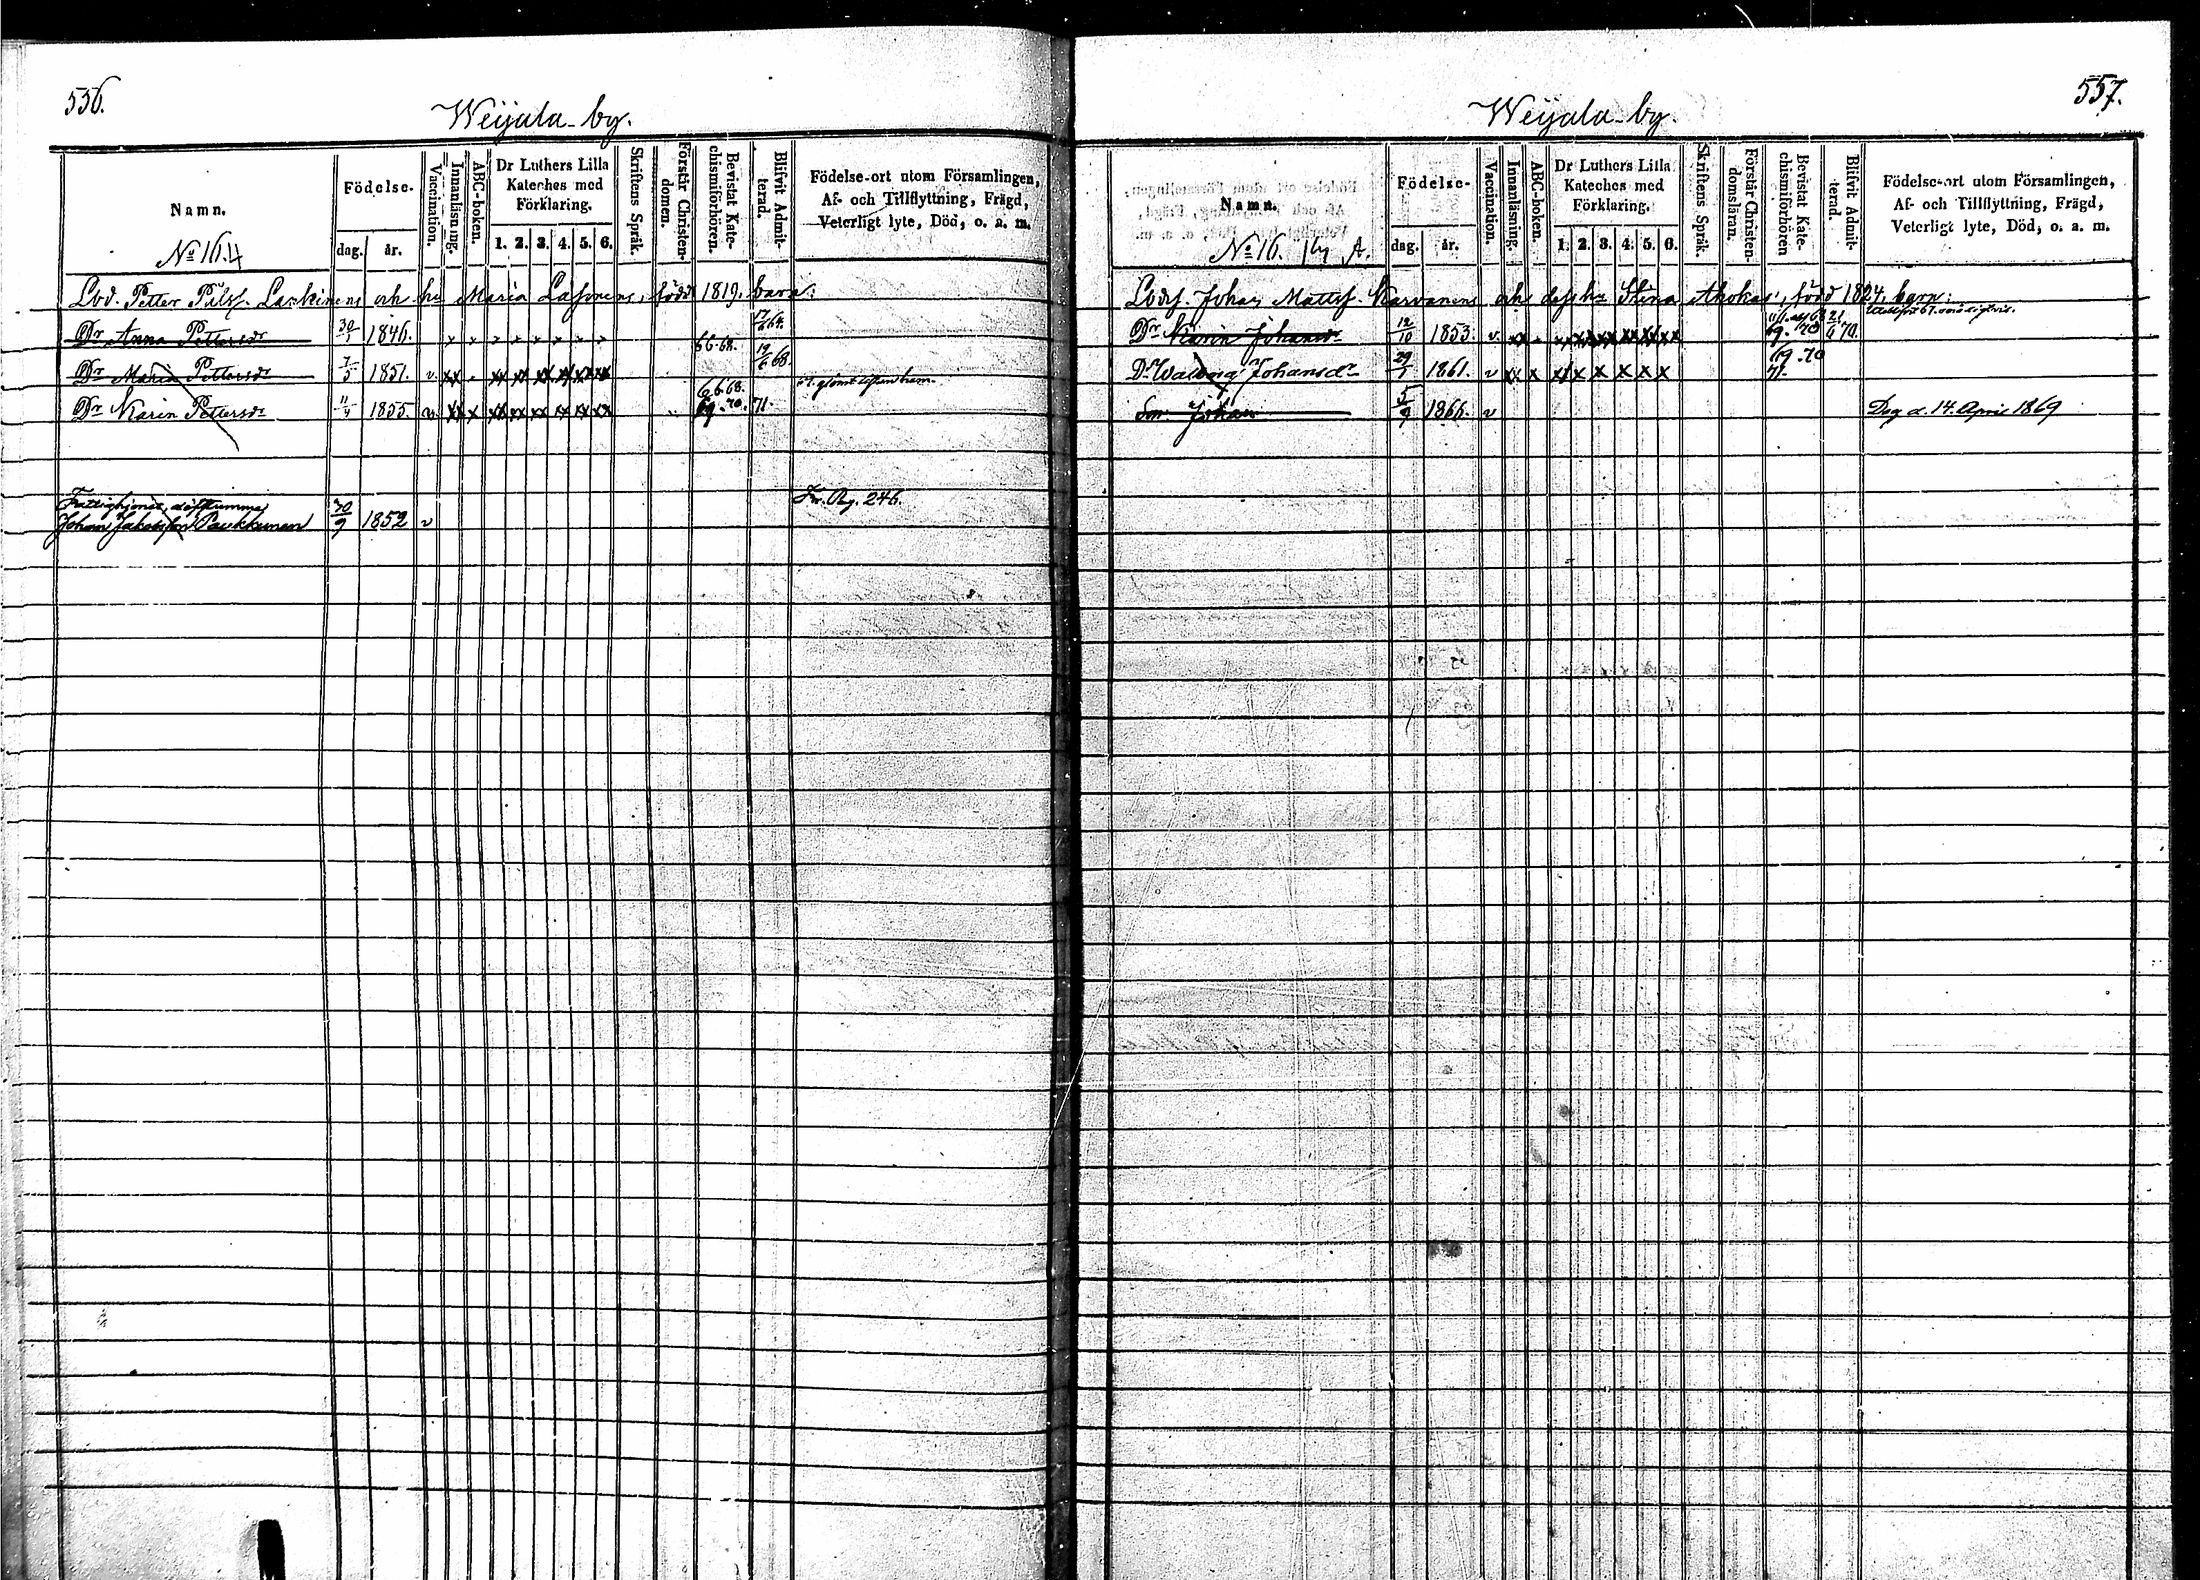 556.
Weijala by.
Namn.
No 16.
Födelse-
dag. år.
Vaccination.
Innanläsning.
ABC-boken.
Dr Luthers Lilla
Kateches med
Förklaring.
1. 2. 3. 4. 5. 6.
Skriftens Språk.
Förstår Christen-
domen.
Bevistat Kate-
chismiförhören.
Blifvit Admit-
terad.
Födelse-ort utom Församlingen,
Af- och Tillflyttning, Frägd,
Veterligt lyte, Död, o. a. m.
Petter Påls. och hu Maria född 1819, barn:
Dr Anna Pettersdr 30/1 1846. x x x x x x x x 66.68. 17/6 64.
Dr Maria Pettersdr 7/5 1851. v. xx xx xx xx xx xx xx 19/6 68.
Dr Karin Pettersdr 11/4 1855. v. xx x xx xx xx xx xx xx 66.68. 69.70. 71.
Johan Jakobsson Paukkunen 30/9 1852 v
Fr. Pag. 246.
557.
Weijala by.
Namn.
No 16. A.
Födelse-
dag. år.
Vaccination.
Innanläsning.
ABC-boken.
Dr Luthers Lilla
Kateches med
Förklaring.
1. 2. 3. 4. 5. 6.
Skriftens Språk.
Förstår Christen-
domsläran.
Bevistat Kate-
chismiförhören
Blifvit Admit-
terad.
Födelse-ort utom Församlingen,
Af- och Tillflyttning, Frägd,
Veterligt lyte, Död, o. a. m.
Johan Matts. Karvanens och dess hu Stina Ahokas, född 1824, barn:
Dr Karin Johansdr 12/10 1853. v. xx xx xx xx xx xx xx 69. 70 21/6 70.
Dr Walborg Johansdr 29/1 1861. v xx x xx x x x x x 69.70 71.
Son Johan 5/9 1866. v Dog d. 14. April 1869